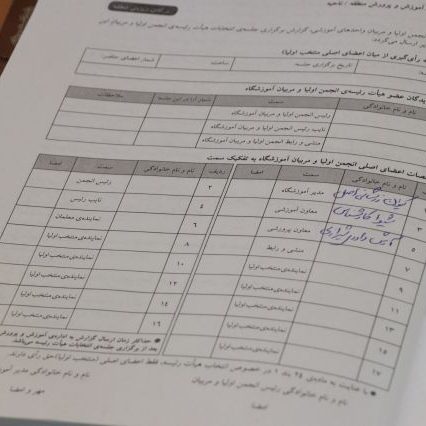 آموزش و پرورش منطقه / ناحیه
انجمن اولیا و مربیان واحدهای آموزشی، گزارش برگزاری جلسه‌ی انتخابات هیأت رئیسه‌ی انجمن اولیا و مربیان این
ارسال می‌گردد.
رأی‌گیری از میان اعضای اصلی منتخب اولیا)
تاریخ برگزاری جلسه
ساعت
شمار اعضای حاضر
عضو هیأت رئیسه‌ی انجمن اولیا و مربیان آموزشگاه
نام و نام خانوادگی
سمت
شمار آرا در این جلسه
ملاحظات
رئیس انجمن اولیا و مربیان آموزشگاه
نایب رئیس انجمن اولیا و مربیان آموزشگاه
منشی و رابط انجمن اولیا و مربیان آموزشگاه
اعضای اصلی انجمن اولیا و مربیان آموزشگاه به تفکیک سمت
نام و نام خانوادگی
سمت
امضا
ردیف
نام و نام خانوادگی
سمت
امضا
مدیر آموزشگاه
۲
رئیس انجمن
۳
معاون آموزشی
۴
نایب رئیس
۵
معاون پرورشی
۶
نماینده‌ی معلمان
۷
منشی و رابط
۸
نماینده‌ی منتخب اولیا
۹
نماینده‌ی منتخب اولیا
۱۰
نماینده‌ی منتخب اولیا
۱۱
نماینده‌ی منتخب اولیا
۱۲
نماینده‌ی منتخب اولیا
۱۳
نماینده‌ی منتخب اولیا
۱۴
نماینده‌ی منتخب اولیا
۱۵
نماینده‌ی منتخب اولیا
۱۶
نماینده‌ی منتخب اولیا
۱۷
نماینده‌ی منتخب اولیا
حداکثر زمان ارسال گزارش به اداره‌ی آموزش و پرورش
بعد از برگزاری جلسه‌ی انتخابات هیأت رئیسه می‌باشد.
با عنایت به ماده‌ی ۲۴ بند ۱ در خصوص انتخاب هیأت رئیسه، فقط اعضای اصلی (منتخب اولیا) حق رأی دارند.
نام و نام خانوادگی رئیس انجمن اولیا و مربیان
امضا
نام و نام خانوادگی مدیر
مهر و امضا